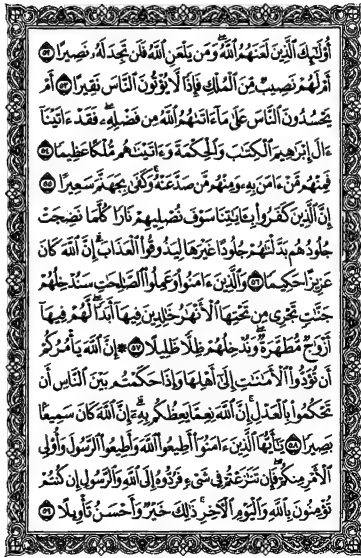 أُوْلَٰٓئِكَ ٱلَّذِينَ لَعَنَهُمُ ٱللَّهُۖ وَمَن يَلْعَنِ ٱللَّهُ فَلَن تَجِدَ لَهُۥ نَصِيرًا ٥٢
أَمْ لَهُمْ نَصِيبٌ مِّنَ ٱلْمُلْكِ فَإِذًا لَّا يُؤْتُونَ ٱلنَّاسَ نَقِيرًا ٥٣ أَمْ
يَحْسُدُونَ ٱلنَّاسَ عَلَىٰ مَآ ءَاتَىٰهُمُ ٱللَّهُ مِن فَضْلِهِۦۖ فَقَدْ ءَاتَيْنَآ
ءَالَ إِبْرَٰهِيمَ ٱلْكِتَٰبَ وَٱلْحِكْمَةَ وَءَاتَيْنَٰهُم مُّلْكًا عَظِيمًا ٥٤
فَمِنْهُم مَّنْ ءَامَنَ بِهِۦ وَمِنْهُم مَّن صَدَّ عَنْهُۚ وَكَفَىٰ بِجَهَنَّمَ سَعِيرًا ٥٥
إِنَّ ٱلَّذِينَ كَفَرُواْ بِـَٔايَٰتِنَا سَوْفَ نُصْلِيهِمْ نَارًا كُلَّمَا نَضِجَتْ
جُلُودُهُم بَدَّلْنَٰهُمْ جُلُودًا غَيْرَهَا لِيَذُوقُواْ ٱلْعَذَابَۗ إِنَّ ٱللَّهَ كَانَ
عَزِيزًا حَكِيمًا ٥٦ وَٱلَّذِينَ ءَامَنُواْ وَعَمِلُواْ ٱلصَّٰلِحَٰتِ سَنُدْخِلُهُمْ
جَنَّٰتٍ تَجْرِى مِن تَحْتِهَا ٱلْأَنْهَٰرُ خَٰلِدِينَ فِيهَآ أَبَدًاۖ لَّهُمْ فِيهَآ
أَزْوَٰجٌ مُّطَهَّرَةٌۖ وَنُدْخِلُهُمْ ظِلًّا ظَلِيلًا ٥٧ ۞ إِنَّ ٱللَّهَ يَأْمُرُكُمْ
أَن تُؤَدُّواْ ٱلْأَمَٰنَٰتِ إِلَىٰٓ أَهْلِهَا وَإِذَا حَكَمْتُم بَيْنَ ٱلنَّاسِ أَن
تَحْكُمُواْ بِٱلْعَدْلِۚ إِنَّ ٱللَّهَ نِعِمَّا يَعِظُكُم بِهِۦٓۗ إِنَّ ٱللَّهَ كَانَ سَمِيعًۢا
بَصِيرًا ٥٨ يَٰٓأَيُّهَا ٱلَّذِينَ ءَامَنُوٓاْ أَطِيعُواْ ٱللَّهَ وَأَطِيعُواْ ٱلرَّسُولَ وَأُوْلِى
ٱلْأَمْرِ مِنكُمْۖ فَإِن تَنَٰزَعْتُمْ فِى شَىْءٍ فَرُدُّوهُ إِلَى ٱللَّهِ وَٱلرَّسُولِ إِن كُنتُمْ
تُؤْمِنُونَ بِٱللَّهِ وَٱلْيَوْمِ ٱلْأَخِرِۚ ذَٰلِكَ خَيْرٌ وَأَحْسَنُ تَأْوِيلًا ٥٩